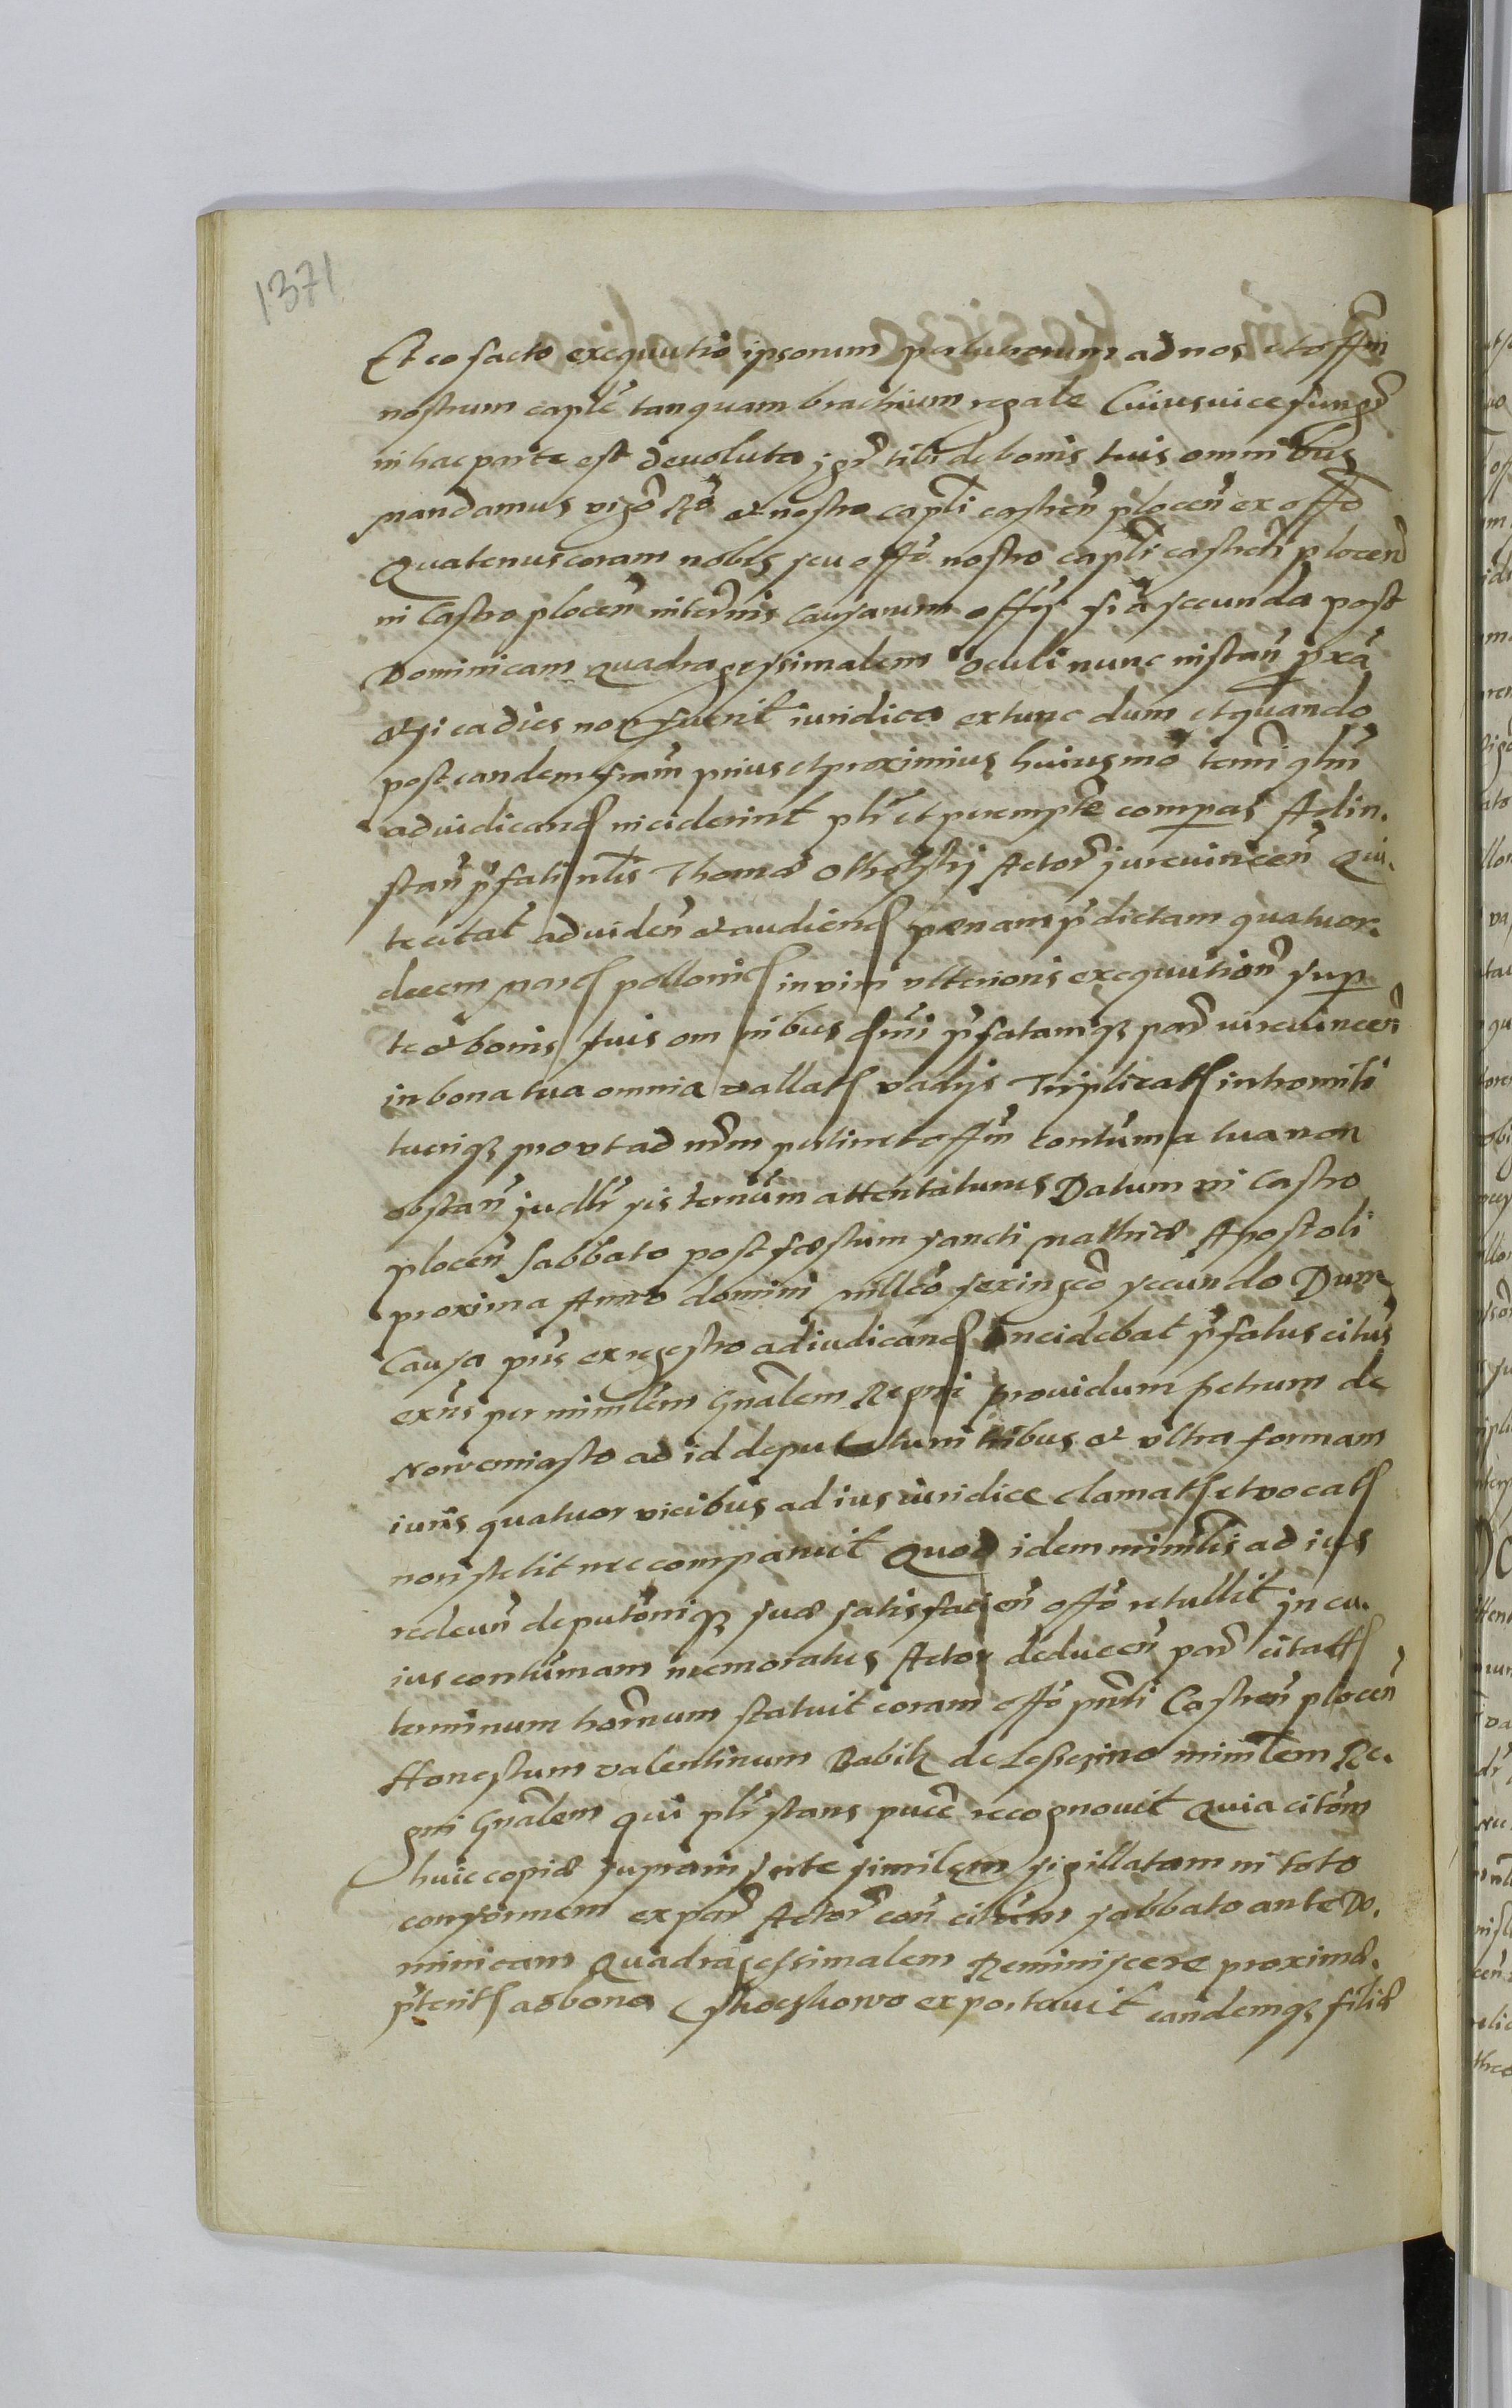 1371
Et eo facto exequutio ipsorum perlucrorum ad nos et offm
nostrum caple tanquam brachium regale Cuius vice fungr
in hac parte est devoluta igr tibi de bonis tuis omnibus
mandamus vigo Ro et nostro capli castren plocen ex offo
Quatenus coram nobis seu offo nostro capli castren plocen
in Castro plocen in terminis causarum offy fria secunda post
Dominicam Quadragesimalem Oculi nunc instan pxa
et si ea dies non fuerit iuridica extunc dum et quando
post eandem friam prius et proximius huiusmo termi qm
adiudicand inciderint plr et perempte compas Ad in-
stan pfati nlis Thomæ Actor jurevincen Qui
te citat ad viden et audiend pænam pdictam quatuor-
decem marc pollonic in vim ulterioris exequution sup
te et bonis tuis omnibus pfatamq par jurevincen
in bona tua omnia vallat vadys Triplicat intromitti
tueriq prout ad nrm pertinet offm contuma tua non
obstan judlr sis termum attentaturus Datum in Castro
plocen Sabbato post fæstum sancti Mathiæ Apostoli
proxima Anno domini milleo sexingeo secundo Dum
Causa pns ex regestro adiudicand incidebat pfatus citus
exns per minilem Gnalem Regni providum petrum de
Nowemiasto ad id deputatum tribus et ultra formam
iuris quatuor vicibus ad ius iuridice clamat et vocat
non stetit nec comparuit Quod idem minilis ad ius
redeun deputoniq suæ satisfacien offo retullit in cu-
ius contumam memoratus Actor deducen par citat
terminum hornum statuit coram offo pnti Castren plocen
Honestum valentinum Babik de minilem Re-
gni Gnalem qui plr stans puce recognovit Quia citom
huic copiæ suprainserte similem sigillatam in toto
conformem ex par Actor con citum sabbato ante Do-
minicam Quadragesimalem Reminiscere proxime
pterit ad bona exportavit eandemq filiæ